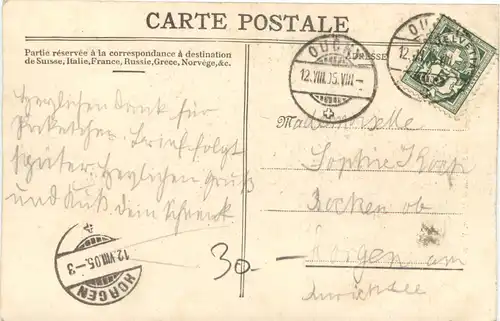 CARTE POSTALE
Partie réservée à la correspondance à destination
de Suisse, Italie, France, Russie, Grece, Norvége, &c.
ADRESSE
OUCHY
12.VIII.05.VIII—
OUCHY
12.VIII
HELVETIA
Herzlichen Dank für
Brief folgt
später. Herzlichen Gruß
und Kuß dein
Mademoiselle
Sophie
Bocken ob
Horgen am
Zürichsee
30.—
HORGEN
12.VIII.05.—3